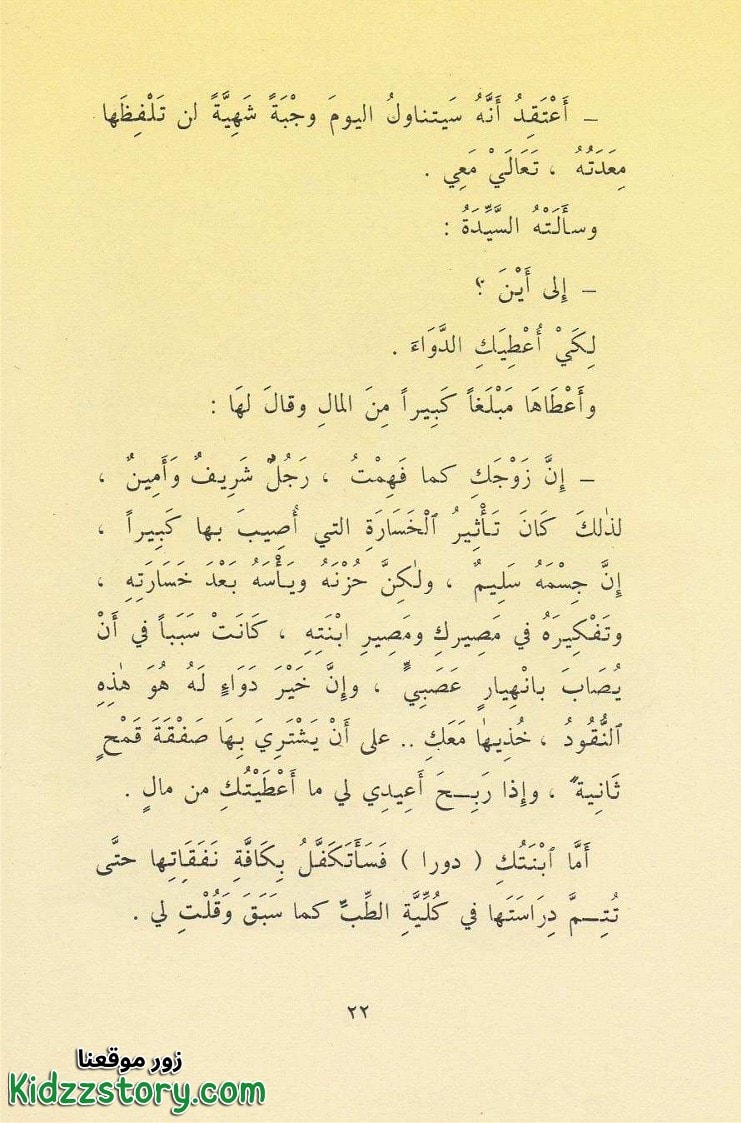 – أَعْتَقِدُ أَنَّهُ سَيتناولُ اليومَ وجْبَةً شَهِيَّةً لن تَلْفِظَها
مِعَدَتُهُ ، تَعَالَيْ مَعِي .
وسأَلَتْهُ السَّيِّدَةُ :
– إِلى أَيْنَ ؟
لِكَيْ أُعْطِيَكِ الدَّوَاءَ .
وأَعْطَاهَا مَبْلَغاً كَبِيراً مِنَ المالِ وقالَ لهَا :
– إِنَّ زَوْجَكِ كما فَهِمْتُ ، رَجُلٌ شَرِيفٌ وَأَمِينٌ ،
لذٰلكَ كَانَ تَأْثِيرُ ٱلْخَسَارَةِ التي أُصِيبَ بها كَبِيراً ،
إِنَّ جِسْمَهُ سَلِيمٌ ، ولٰكِنَّ حُزْنَهُ ويَأْسَهُ بَعْدَ خَسَارَتِهِ ،
وتَفْكِيرَهُ في مَصِيركِ ومَصِيرِ ابْنَتِهِ ، كَانَتْ سَبَباً في أَنْ
يُصَابَ بانْهِيارٍ عَصَبِيٍّ ، وإِنَّ خَيْرَ دَوَاءٍ لَهُ هُوَ هٰذِهِ
ٱلنُّقُودُ ، خُذِيهَا مَعَكِ .. على أَنْ يَشْتَرِيَ بِهَا صَفْقَةَ قَمْحٍ
ثَانِيةً ، وإِذا رَبِـحَ أَعِيدِي لي ما أَعْطَيْتُكِ من مالٍ .
أَمَّا ٱبْنَتُكِ ( دورا ) فَسَأَتَكَفَّلُ بِكَافَّةِ نَفَقَاتِها حتَّى
تُتِـمَّ دِرَاسَتَها في كُلِّيَّةِ الطِّبِّ كما سَبَقَ وَقُلْتِ لي .
٢٢
زور موقعنا
Kidzzstory.com